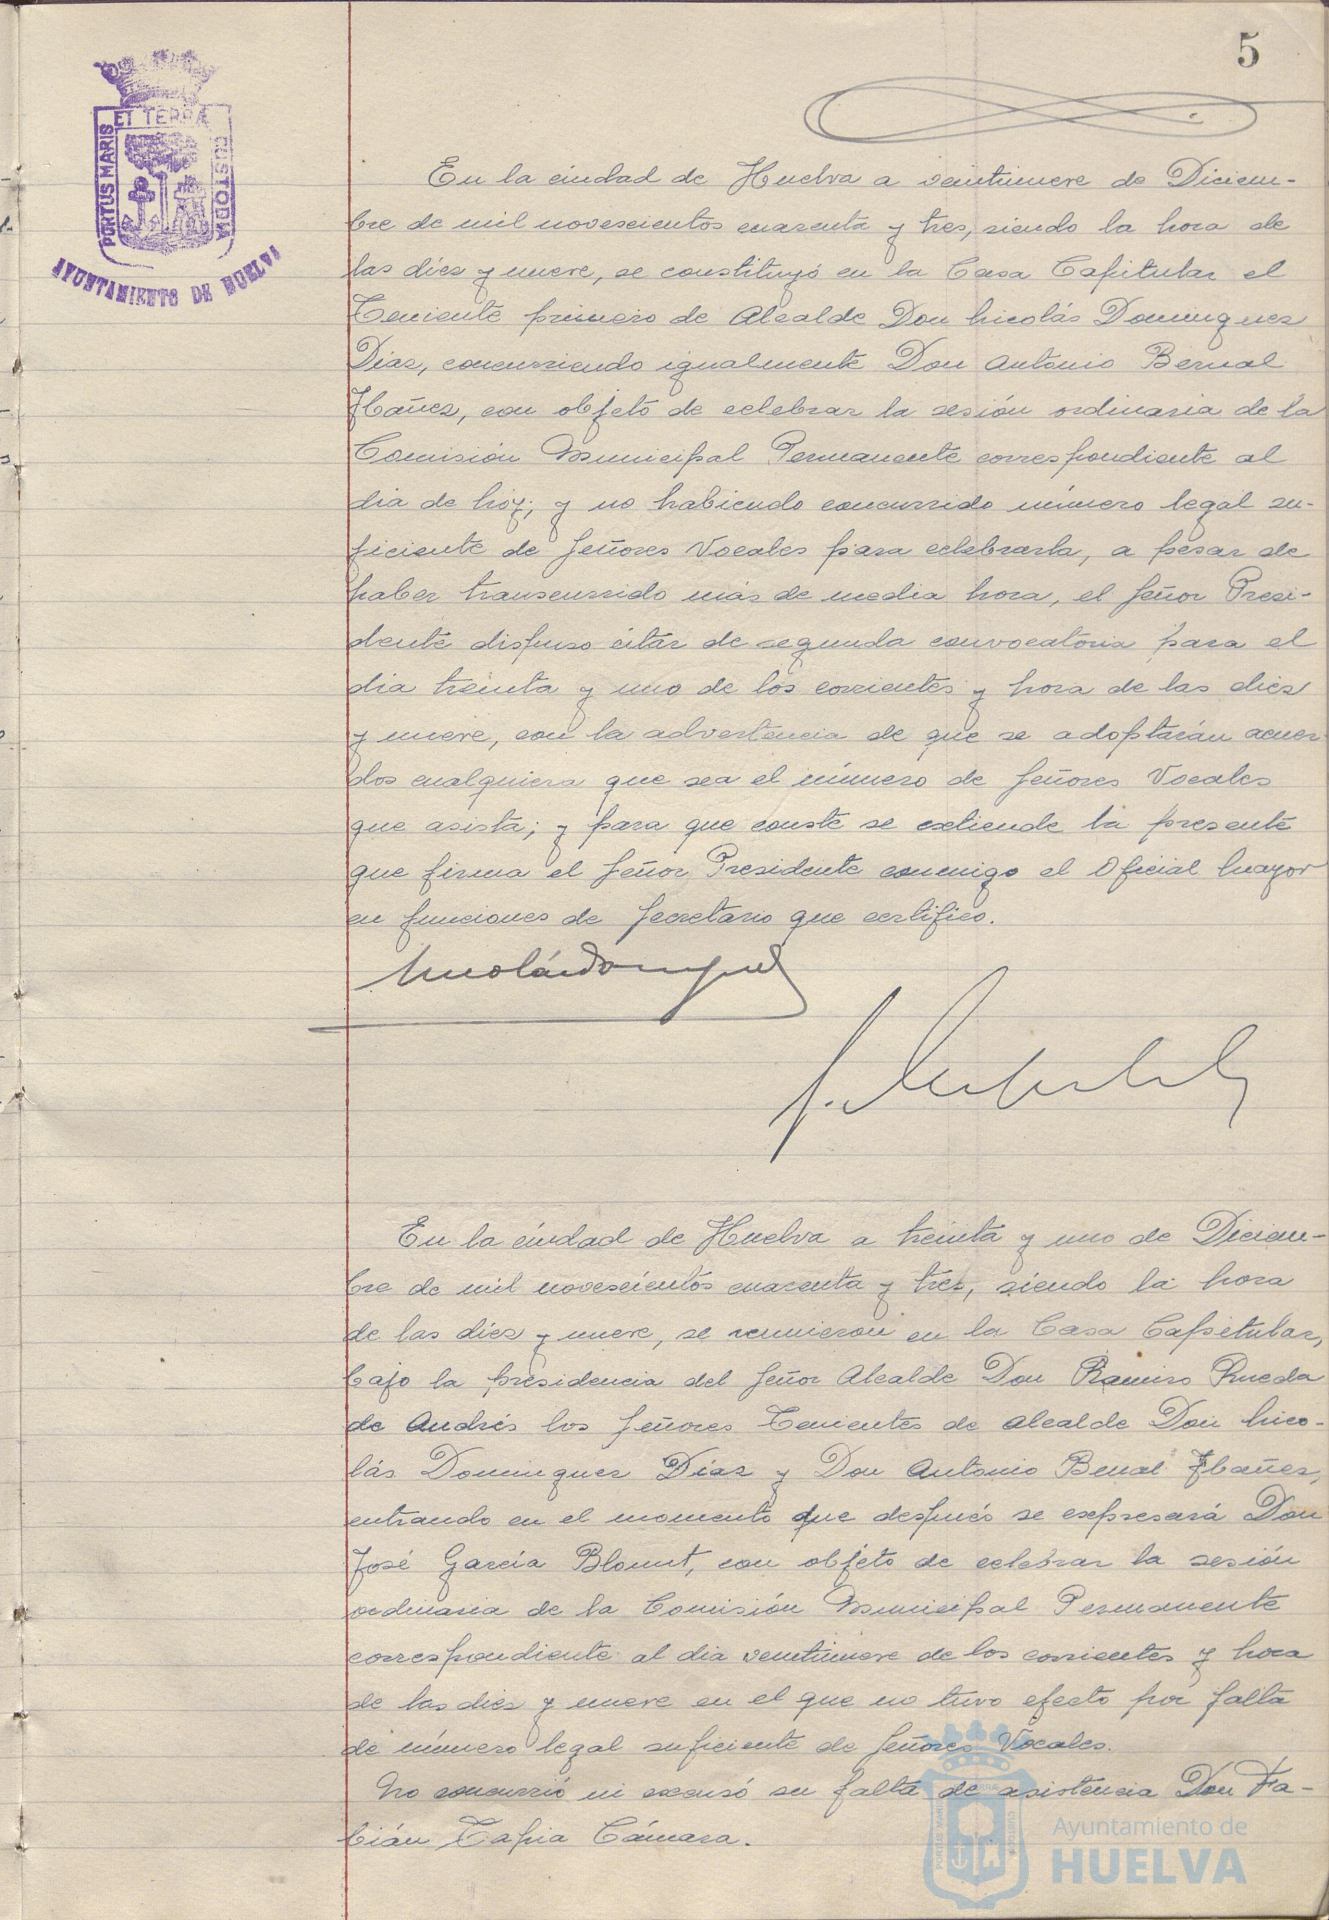 5
PORTUS MARIS ET TERRÆ CUSTODIA
AYUNTAMIENTO DE HUELVA
En la ciudad de Huelva a veintinueve de Diciem-
bre de mil novescientos cuarenta y tres, siendo la hora de
las diez y nueve, se constituyó en la Casa Capitular el
Teniente primero de Alcalde Don Nicolás Dominguez
Diaz, concurriendo igualmente Don Antonio Bernal
Ibañez, con objeto de celebrar la sesión ordinaria de la
Comisión Municipal Permanente correspondiente al
dia de hoy; y no habiendo concurrido número legal su-
ficiente de Señores Vocales para celebrarla, a pesar de
haber transcurrido más de media hora, el Señor Presi-
dente dispuso citar de segunda convocatoria para el
dia treinta y uno de los corrientes y hora de las diez
y nueve, con la advertencia de que se adoptarán acuer-
dos cualquiera que sea el número de Señores Vocales
que asista; y para que conste se extiende la presente
que firma el Señor Presidente conmigo el Oficial Mayor
en funciones de Secretario que certifico.
Nicolás Dominguez
En la ciudad de Huelva a treinta y uno de Diciem-
bre de mil novescientos cuarenta y tres, siendo la hora
de las diez y nueve, se reunieron en la Casa Capitular,
bajo la presidencia del Señor Alcalde Don Ramiro Rueda
de Andrés los Señores Tenientes de Alcalde Don Nico-
lás Dominguez Díaz y Don Antonio Benal Ibañez,
entrando en el momento que después se expresará Don
José García Blount, con objeto de celebrar la sesión
ordinaria de la Comisión Municipal Permanente
correspondiente al dia veintinueve de los corrientes y hora
de las diez y nueve en el que no tuvo efecto por falta
de número legal suficiente de Señores Vocales.
No concurrió ni excusó su falta de asistencia Don Fa-
bián Tapia Cámara.
Ayuntamiento de
HUELVA